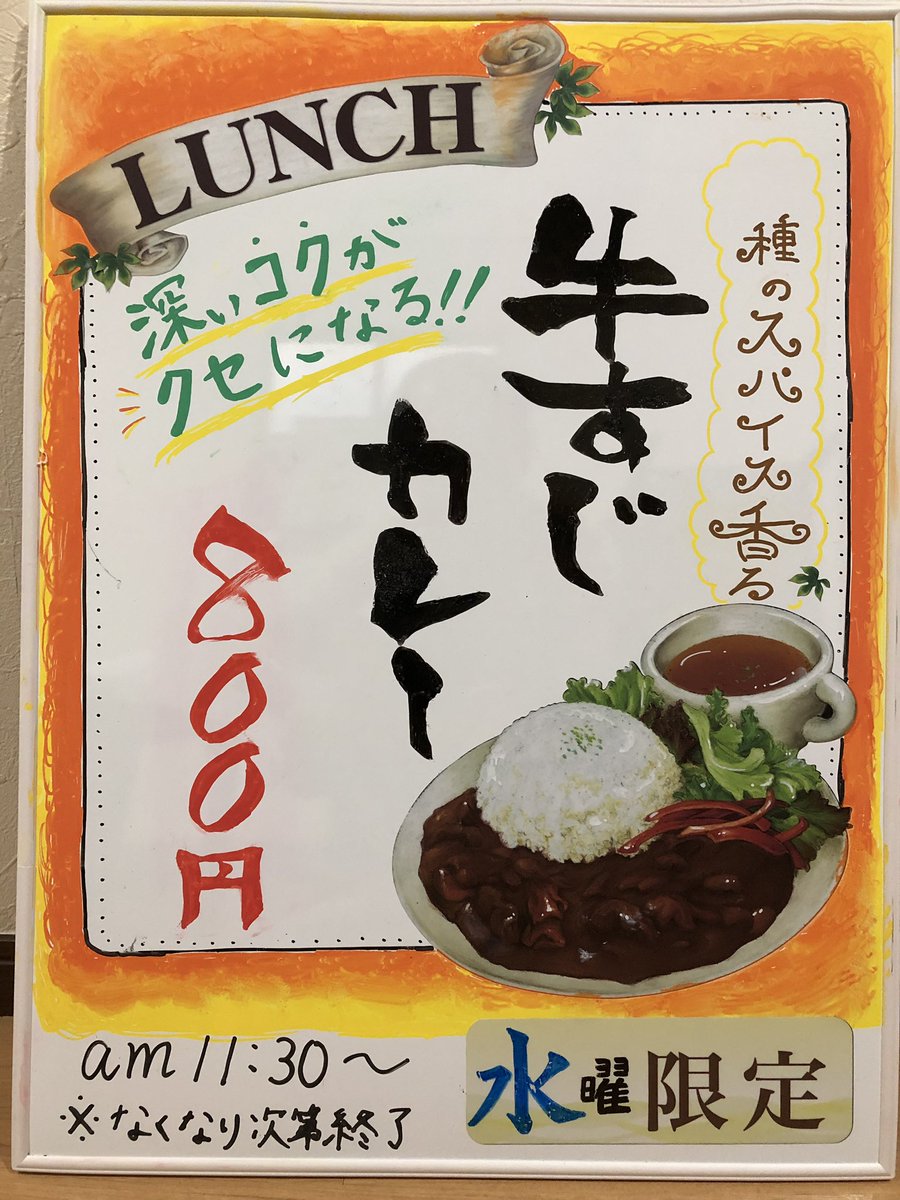 LUNCH
種のスパイス香る
牛すじ
カレー
深いコクが
クセになる!!
800円
am 11:30～
※なくなり次第終了
水曜限定